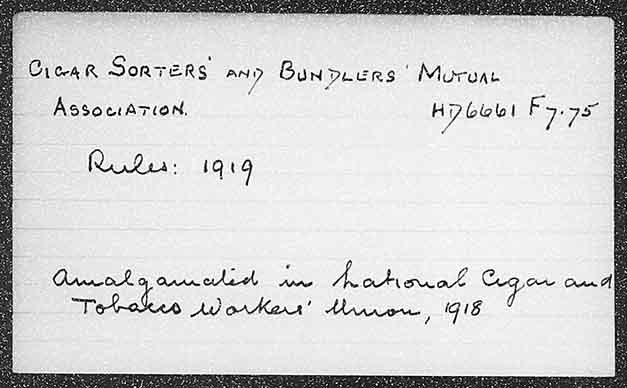 CIGAR SORTERS' AND BUNDLERS' MUTUAL
ASSOCIATION. HD6661 F7.75
Rules: 1919
Amalgamated in National Cigar and
Tobacco Workers' Union, 1918